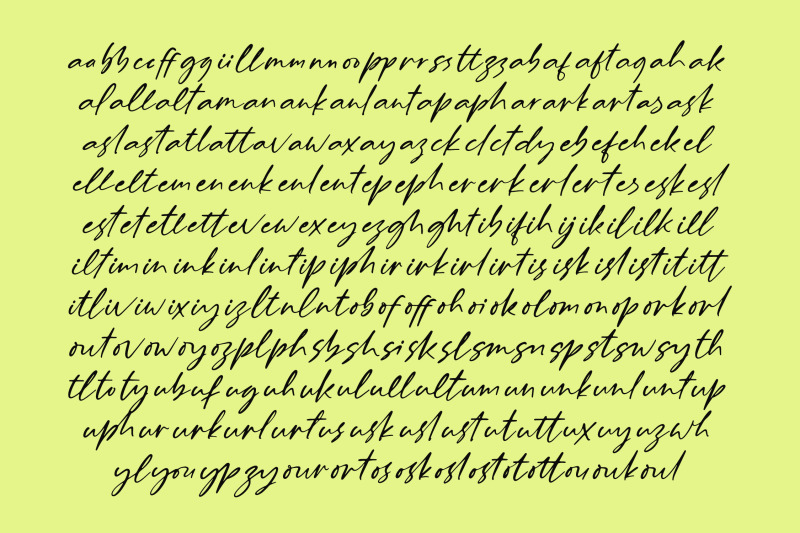 aabbccffggiillmmnnoopprrssttzzabafaftagahak
alallaltamanankanlantapaphararkartasask
aslastatlattavawaxayazckclctdyebefehekel
elleltemenenkenlentepephererkerlerteseskesl
estetetlettevewexeyezghghtibifihijikililkill
iltimininkinlintipiphirirkirlirtisiskislistititt
itliviwixiyizltnlntobofoffohoiokolomonoporkorl
outovowoyozplphsbshsiskslsmsnspstswsyth
tltotyubufuguhukulullultumununkunluntup
uphururkurlurtususkuslustututtuxuyuzwh
ylyouypzyourortososkoslostotottououkoul